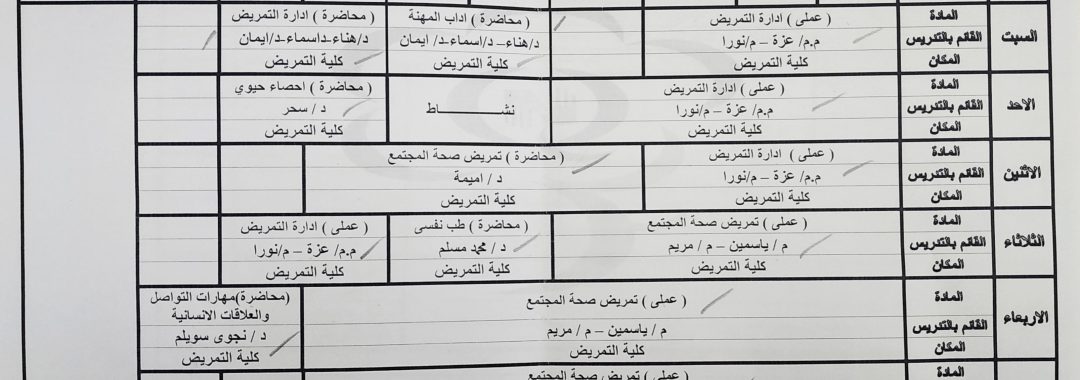 السبت
المادة
القائم بالتدريس
المكان
( عملى ) ادارة التمريض
م.م/ عزة – م/نورا
كلية التمريض
( محاضرة ) اداب المهنة
د/هناء– د/اسماء-د/ ايمان
كلية التمريض
( محاضرة ) ادارة التمريض
د/هناء-داسماء-د/ايمان
كلية التمريض
الاحد
المادة
القائم بالتدريس
المكان
( عملى ) ادارة التمريض
م.م/ عزة – م/نورا
كلية التمريض
نشـــــــــاط
( محاضرة ) احصاء حيوي
د / سحر
كلية التمريض
الاثنين
المادة
القائم بالتدريس
المكان
( عملى ) ادارة التمريض
م.م/ عزة – م/نورا
كلية التمريض
( محاضرة ) تمريض صحة المجتمع
د / اميمة
كلية التمريض
الثلاثاء
المادة
القائم بالتدريس
المكان
( عملى ) تمريض صحة المجتمع
م / ياسمين – م / مريم
كلية التمريض
( محاضرة ) طب نفسى
د / محمد مسلم
كلية التمريض
( عملى ) ادارة التمريض
م.م/ عزة – م/نورا
كلية التمريض
الاربعاء
المادة
القائم بالتدريس
المكان
( عملى ) تمريض صحة المجتمع
م / ياسمين – م / مريم
كلية التمريض
(محاضرة)مهارات التواصل
والعلاقات الانسانية
د / نجوى سويلم
كلية التمريض
المادة
( عملى ) تمريض صحة المجتمع